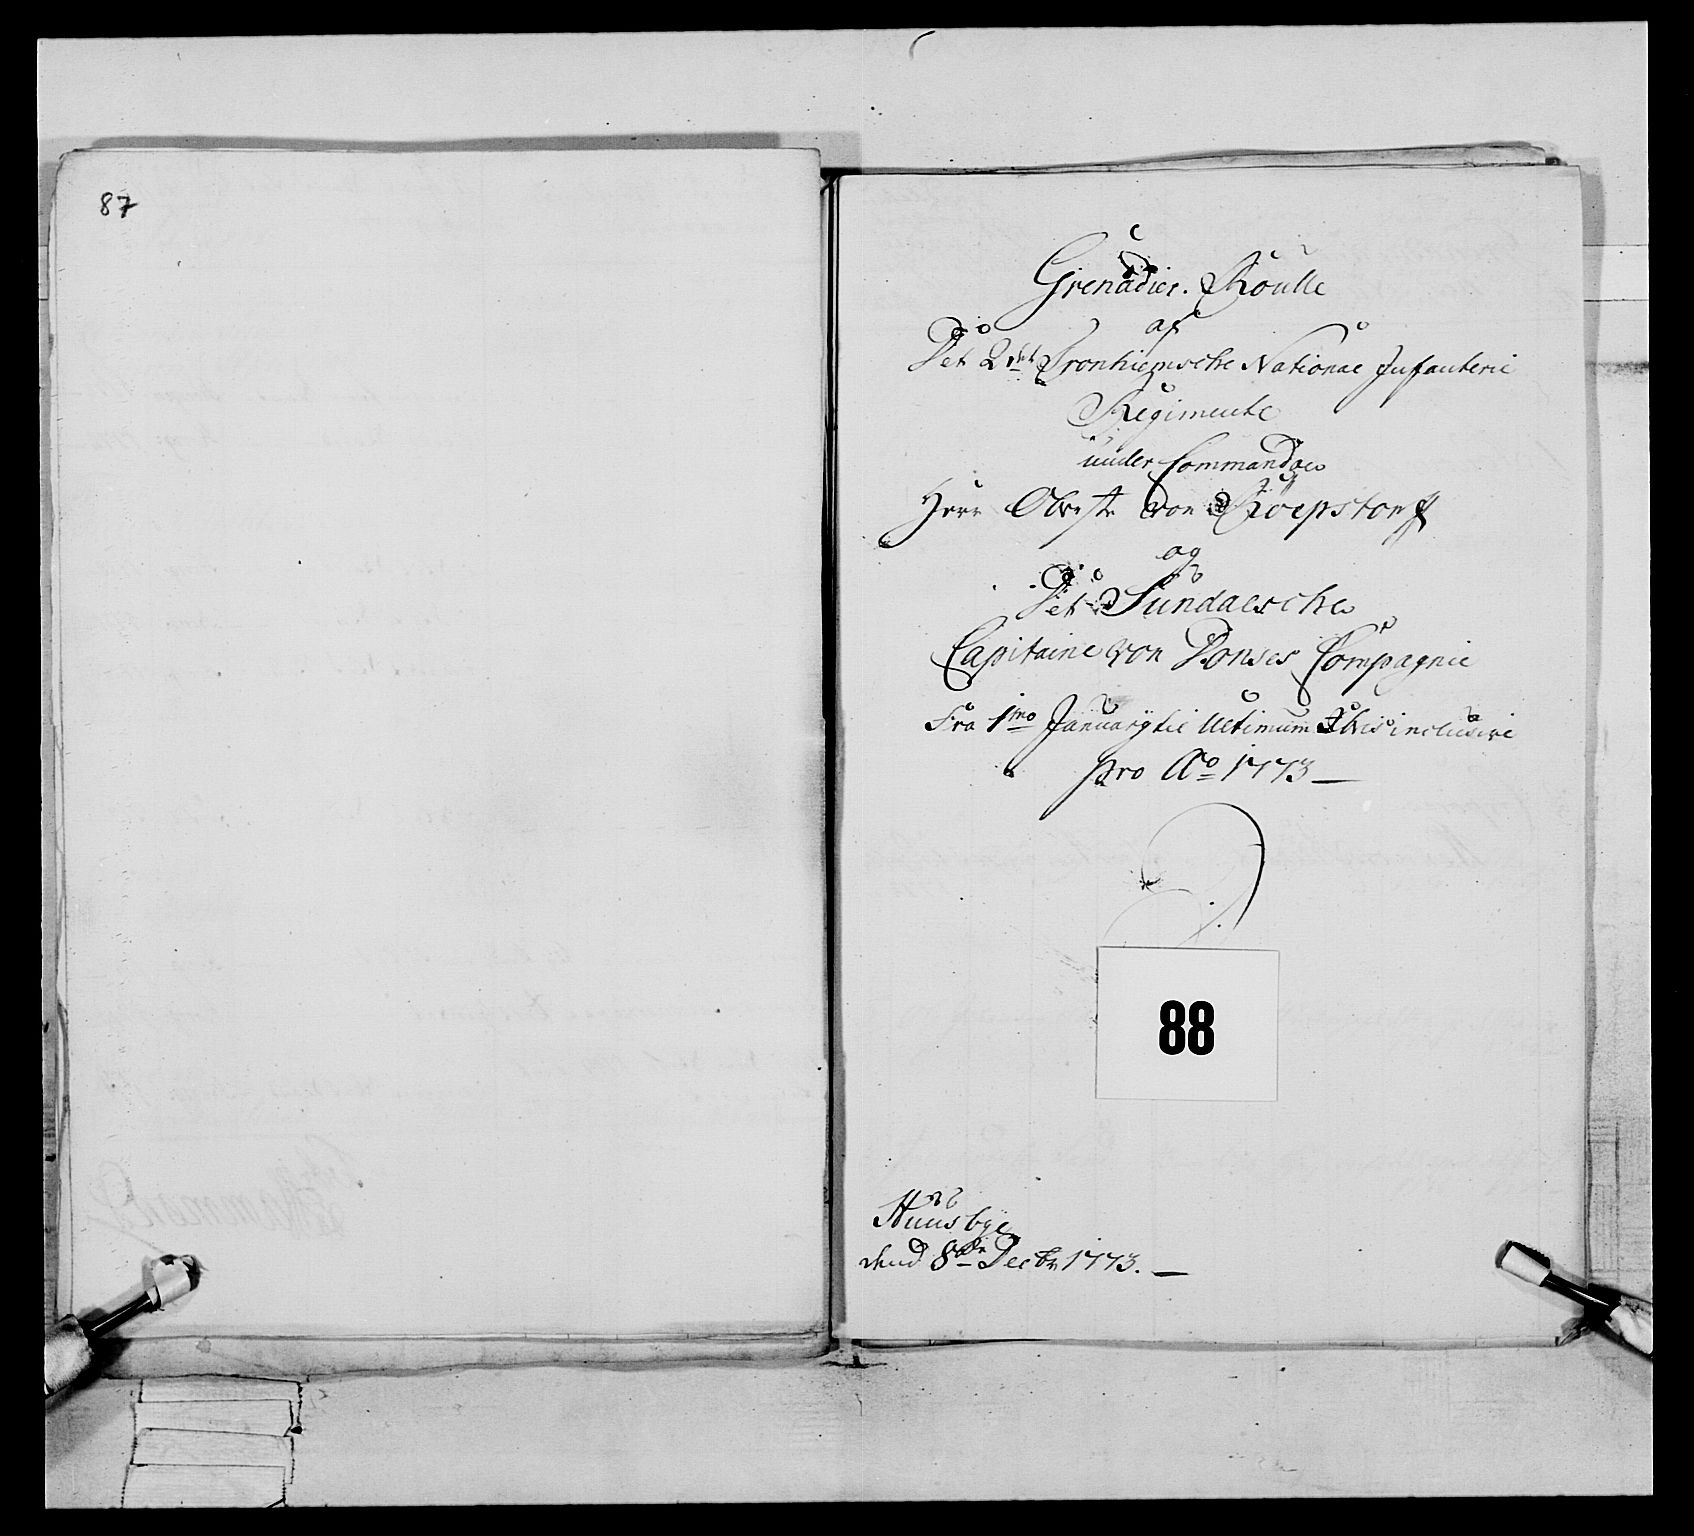 87
Grenadier. Roulle
af
Det 2det Tronhiemsche National Infanterie
Regimente
under Commando
Herr Obrste von Røepstorff
og
Det Sundalsche
Capitaine von Ponses Compagnie
Fra 1mo January til Ultimum Xbris inclusive
pro Ao 1773
88
Huusbye
dend 8de Decbr 1773.